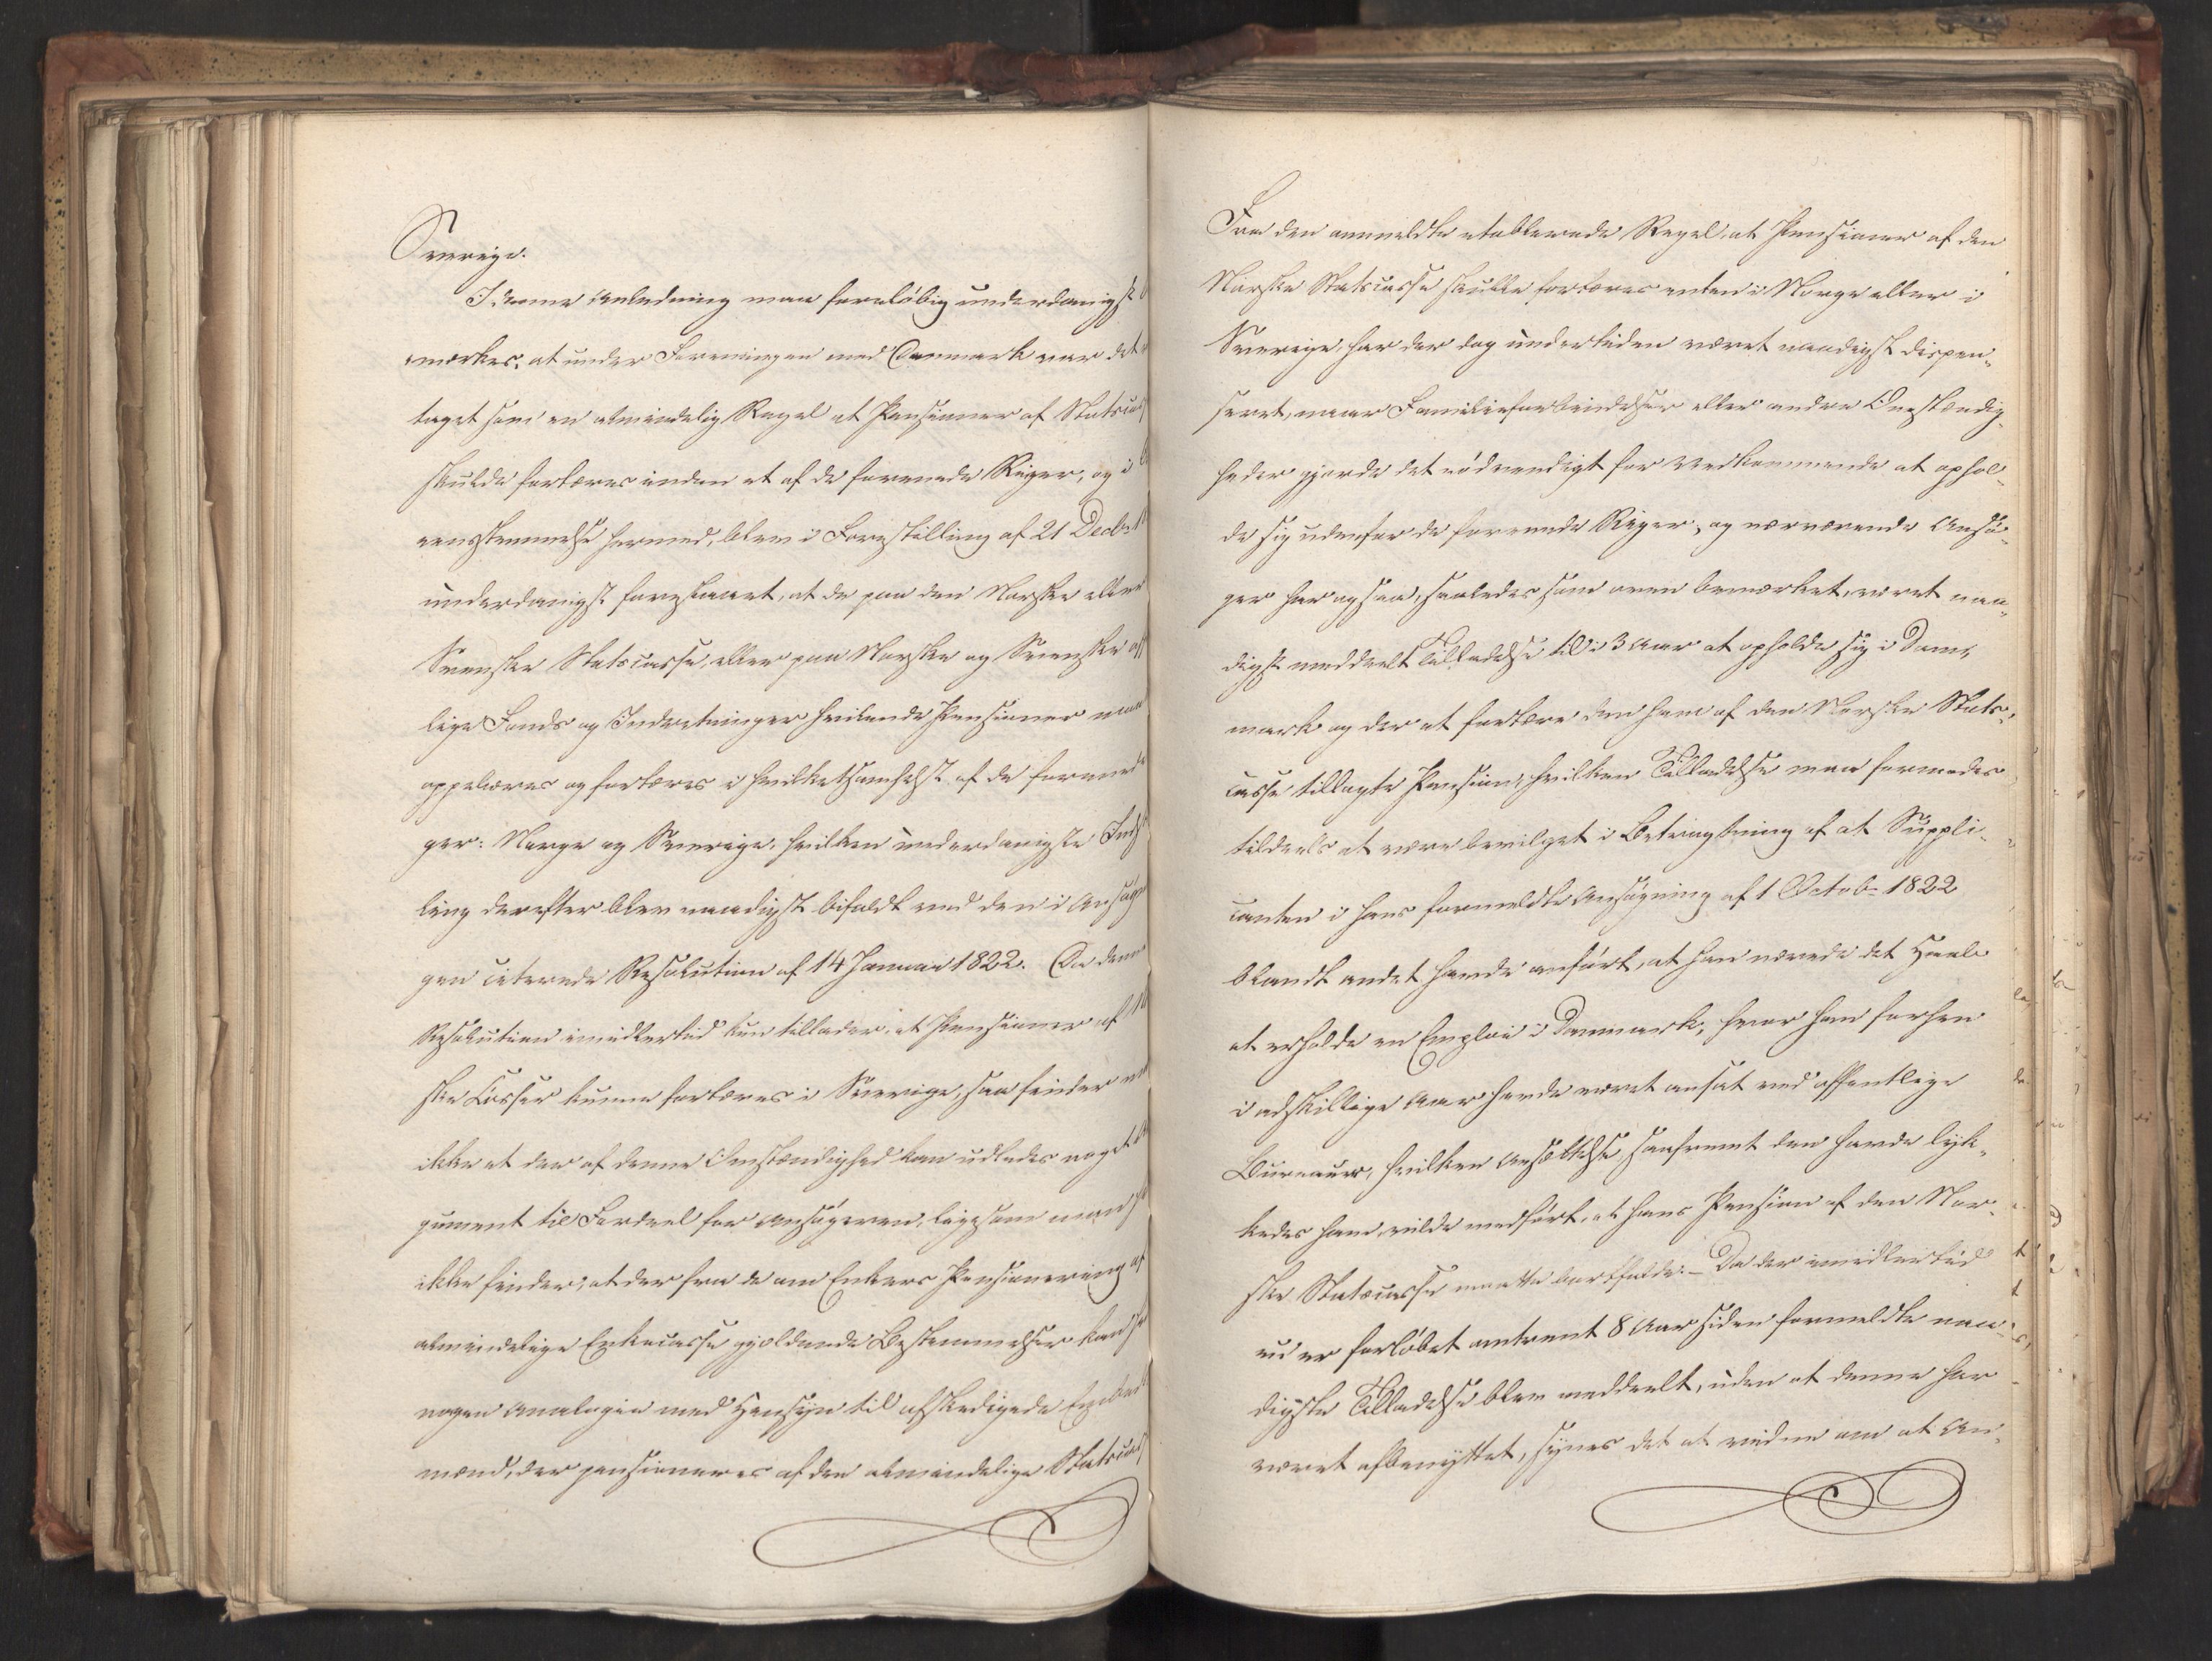 Sverige.
I denne Anledning maa foreløbig underdanigst
mærkes, at under Foreningen med Danmark var det
taget som en almindelig Regel at Pensioner af Statscas
skulde fortæres inden et af de forenede Riger, og i
eensstemmelse hermed, blev i Forestilling af 21 Decbr
underdanigst foreslaaet, at de paa den Norske eller
Svenske Statscasse, eller paa Norske og Svenske off
lige Fonds og Indretninger hvilende Pensioner maa
oppebæres og fortæres i hvilketsomhelst af de forenede
ger: Norge og Sverige, hvilken underdanigste Indst
ling derefter blev naadigst bifaldt ved den i Ansøgn
gen citerede Resolution af 14 Januar 1822. Da denne
Resolution imidlertid kun tillader, at Pensioner af
ske Casser kunne fortæres i Sverige, saa finder
ikke at der af denne Omstændighed kan udledes noget
gument til Fordeel for Ansøgeren, ligesom man
ikke finder, at der fra de om Enkers Pensionering af
almindelige Enkecasse gjældende Bestemmelser kan
nogen Analogie med Hensyn til afskedigede Embeds
mænd, der pensioneres af den almindelige Statscas
Fra den anmeldte etablerede Regel, at Pensioner af den
Norske Statscasse skulle fortæres enten i Norge eller i
Sverige, har der dog undertiden været naadigst dispen-
seret, naar Familieforbindelser eller andre Omstændig-
heder gjorde det nødvendigt for Vedkommende at ophol-
de sig udenfor de forenede Riger, og nærværende Ansø-
ger har ogsaa, saaledes som oven bemærket, været naa-
digst meddeelt Tilladelse til i 3 Aar at opholde sig i Dan-
mark og der at fortære den ham af den Norske Stats-
casse tillagte Pension, hvilken Tilladelse maa formodes
tildeels at være bevilget i Betragtning af at Suppli-
canten i hans formeldte Ansøgning af 1 Octobr 1822
blandt andet havde anført, at han nærede det Haab
at erholde en Emploi i Danmark, hvor han forhen
i adskillige Aar havde været ansat ved offentlige
Bureauer, hvilken Ansættelse, saafremt den havde lyk-
kedes ham, vilde medført, at hans Pension af den Nor-
ske Statscasse maatte bortfalde. – Da der imidlertid
nu er forløbet omtrent 8 Aar siden formeldte naa-
digste Tilladelse blev meddeelt, uden at denne har
været afbenyttet, synes det at vidne om at An-